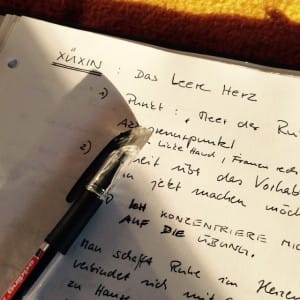 XŪXIN : Das Leere Herz
1) Punkt: "Meer der Ru
Linke Hand, Frauen rech
2) über das Vorhab
jetzt machen möch
3) ICH KONZENTRIERE MIC
AUF DIE ÜBUNG.
Man schafft Ruhe im Herzen
verbindet sich mit
zu Hause